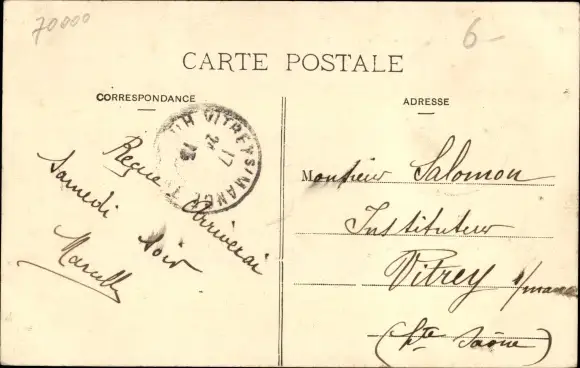 70000
6-
CARTE POSTALE
CORRESPONDANCE
ADRESSE
VITREY S/MANCE
17
Reçue Arriverai
Samedi soir
Marcelle
Monsieur Salomon
Instituteur
Vitrey s/mance
(Hte Saône)